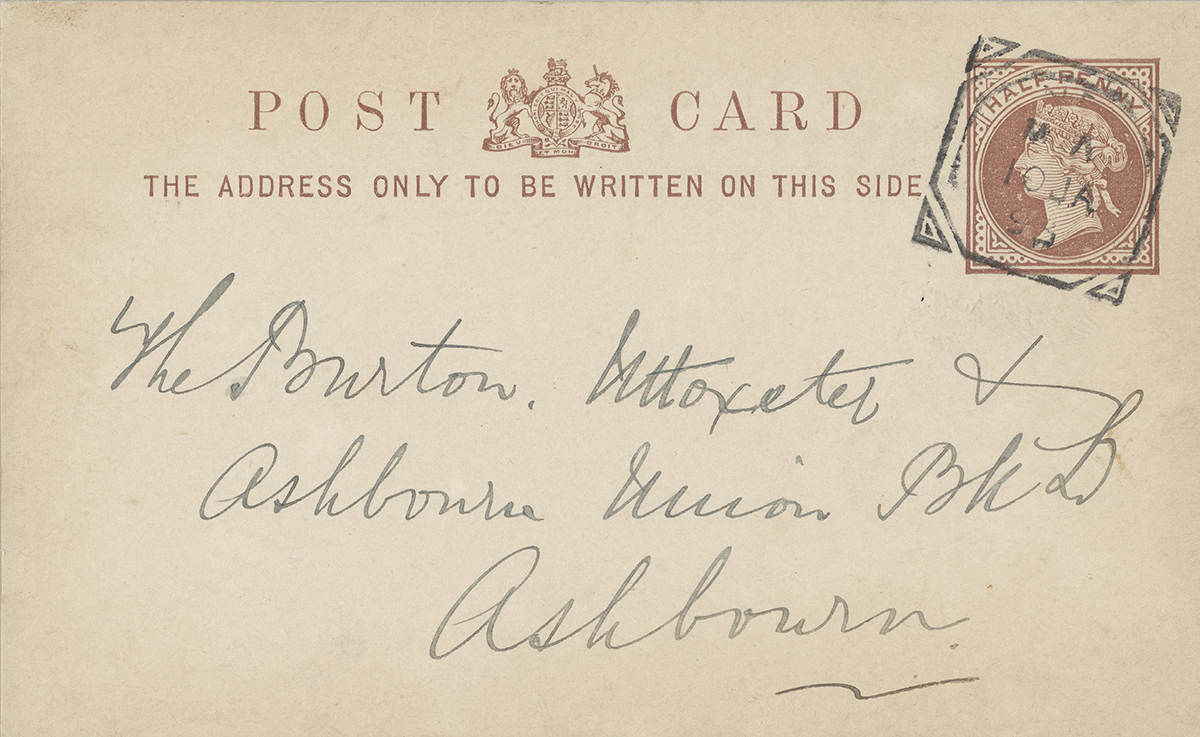 POST CARD
DIEU ET MON DROIT
THE ADDRESS ONLY TO BE WRITTEN ON THIS SIDE
HALF PENNY
M N
10 JA
The Burton, Uttoxeter &
Ashbourn Union Bk Ld
Ashbourn.